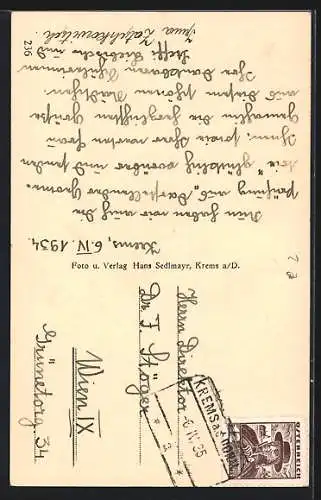 Krems, 6. IV. 1934.
Nun haben wir auch die
Prüfung aus "Darstellender Geome-
trie" glücklich vorüber und senden
Ihnen, sowie Ihrer werten Frau
Gemahlin die herzlichsten Grüße
aus diesem schönen Städtchen.
Ihre dankbaren Schülerinnen
Steffi und
Irma
236
Foto u. Verlag Hans Sedlmayr, Krems a/D.
Herrn Direktor
Dr. J. Stöger
Wien IX
Grünetorg. 34.
KREMS a.d. DONAU
-6.IV.35
* a *
ÖSTERREICH